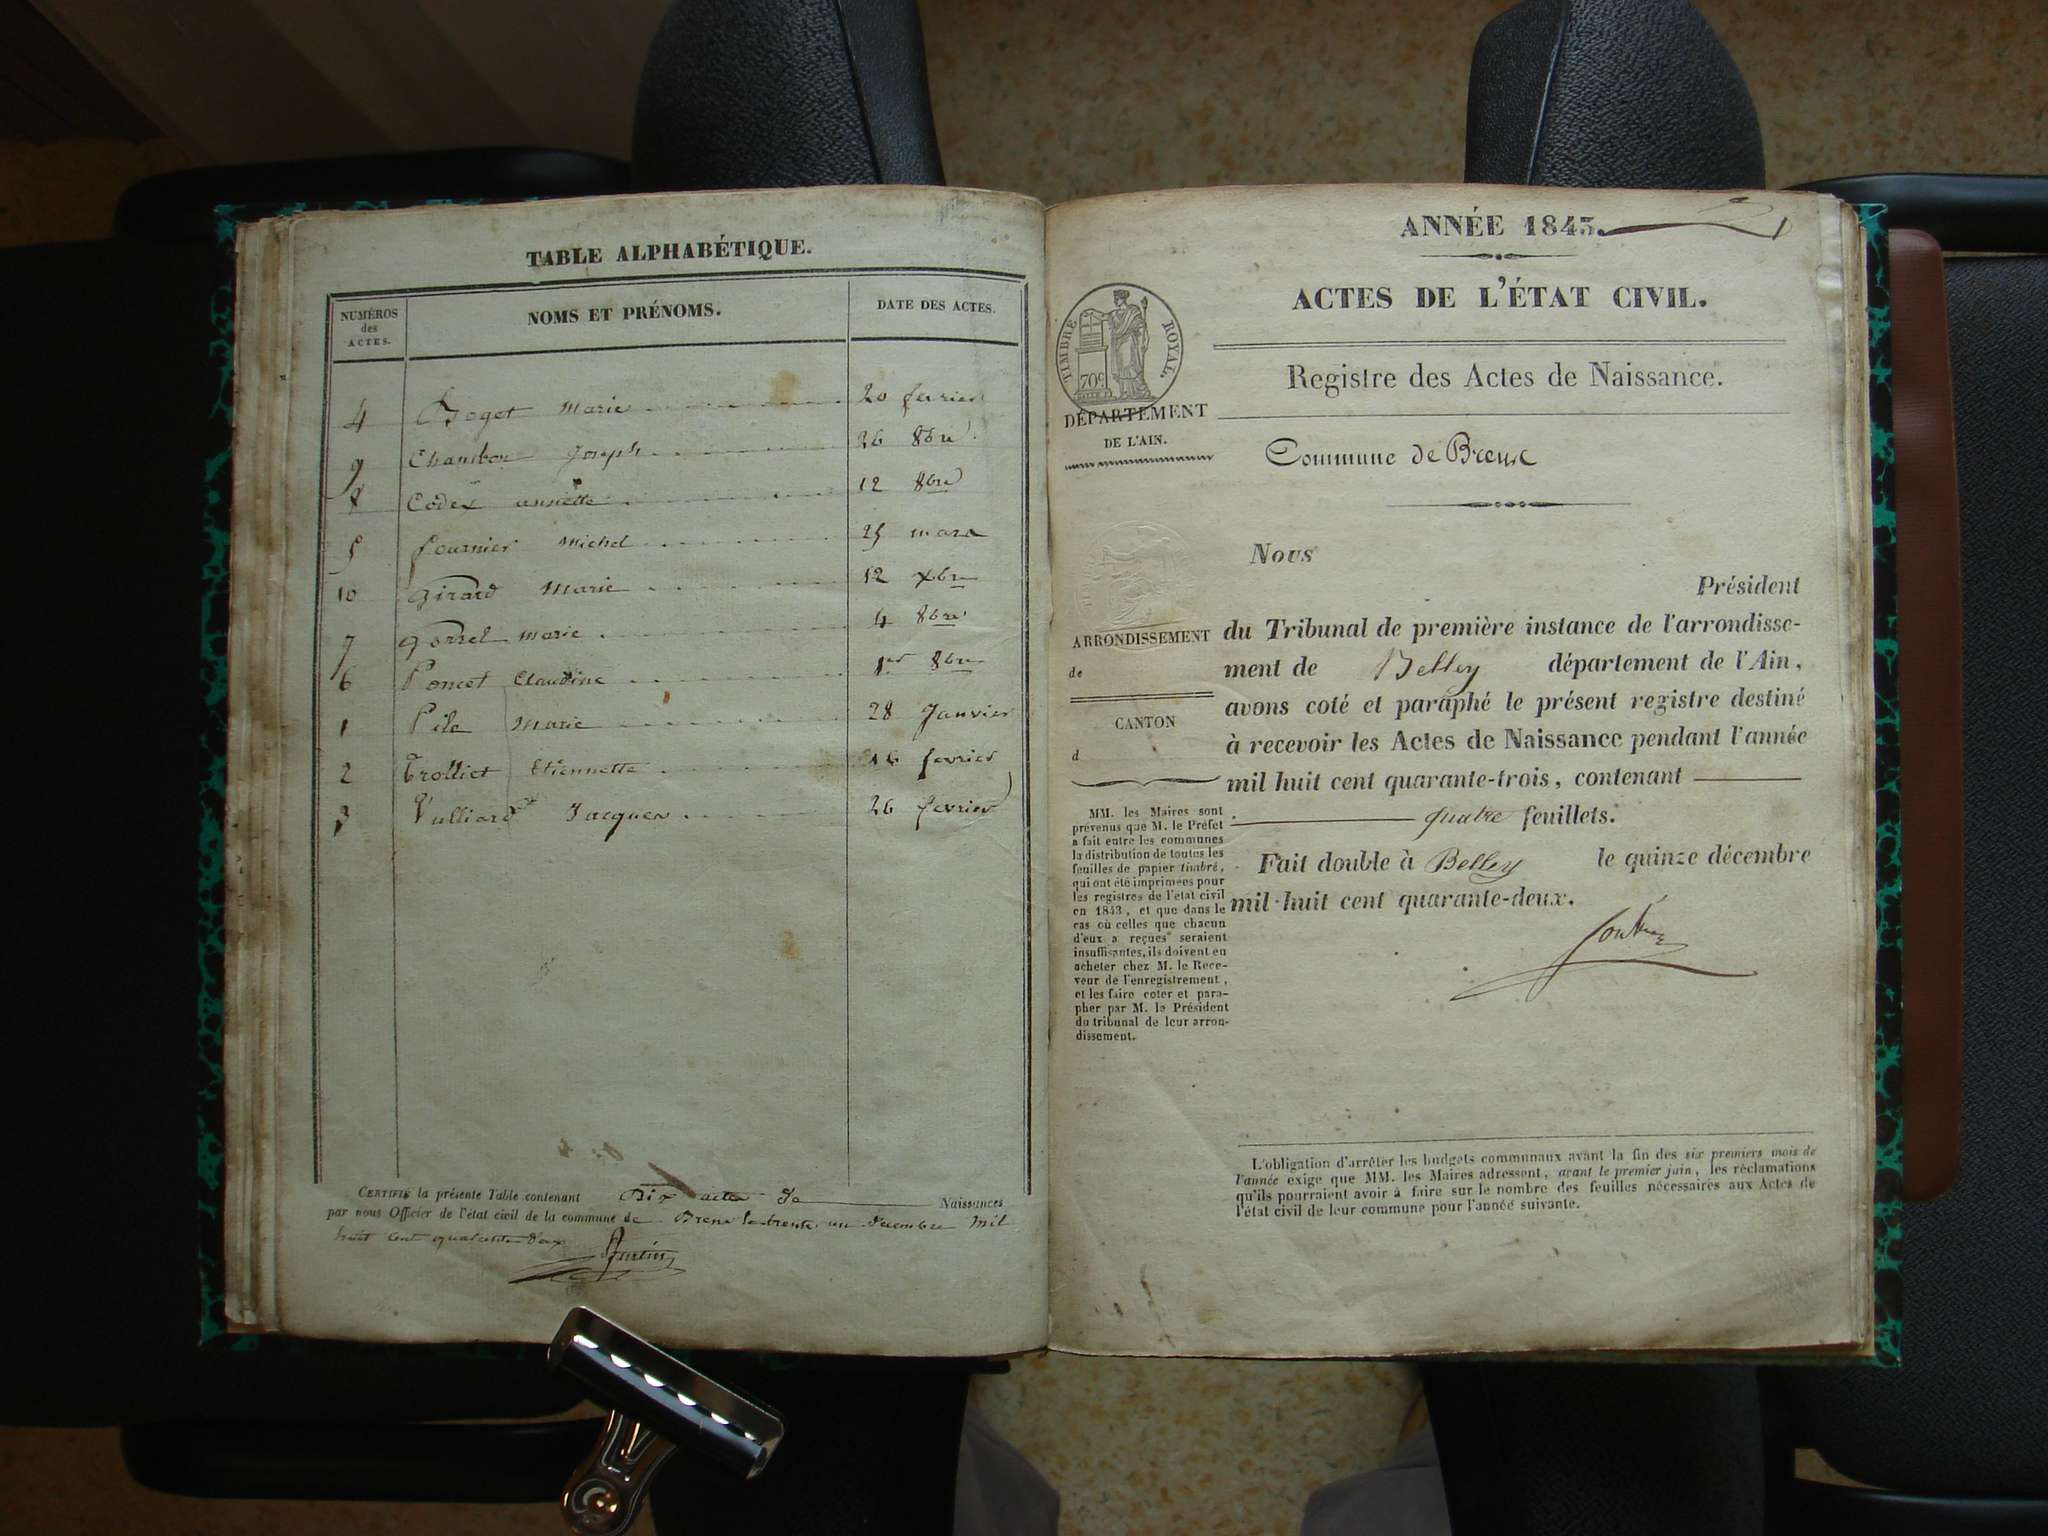 TABLE ALPHABÉTIQUE.
NUMÉROS des ACTES. NOMS ET PRÉNOMS. DATE DES ACTES.
4 Boget Marie 20 fevrier
9 Chambon Joseph 26 8bre
8 Codex annette 12 8bre
5 fournier Michel 25 mars
10 Girard Marie 12 xbre
7 Gorrel marie 4 8bre
6 Poncet Claudine 1er 8bre
1 Pila Marie 28 Janvier
2 Trolliet Etiennette 16 fevrier
3 Vulliard Jacques 26 fevrier
CERTIFIÉ la présente Table contenant Dix actes de Naissances
par nous Officier de l'état civil de la commune de Brens le trente un decembre Mil
huit cent quarante deux
ANNÉE 1843.
ACTES DE L'ÉTAT CIVIL.
TIMBRE ROYAL.
70c
Registre des Actes de Naissance.
DÉPARTEMENT
DE L'AIN.
Commune de Brens
Nous
Président
du Tribunal de première instance de l'arrondisse-
ment de Belley département de l'Ain,
avons coté et paraphé le présent registre destiné
à recevoir les Actes de Naissance pendant l'année
mil huit cent quarante-trois, contenant
quatre feuillets.
Fait double à Belley le quinze décembre
mil huit cent quarante-deux.
ARRONDISSEMENT
de
CANTON
d
MM. les Maires sont
prévenus que M. le Préfet
a fait entre les communes
la distribution de toutes les
feuilles de papier timbré,
qui ont été imprimées pour
les registres de l'état civil
en 1843, et que dans le
cas où celles que chacun
d'eux a reçues seraient
insuffisantes, ils doivent en
acheter chez M. le Rece-
veur de l'enregistrement,
et les faire coter et para-
pher par M. le Président
du tribunal de leur arron-
dissement.
L'obligation d'arrêter les budgets communaux avant la fin des six premiers mois de
l'année exige que MM. les Maires adressent, avant le premier juin, les réclamations
qu'ils pourraient avoir à faire sur le nombre des feuilles nécessaires aux Actes de
l'état civil de leur commune pour l'année suivante.